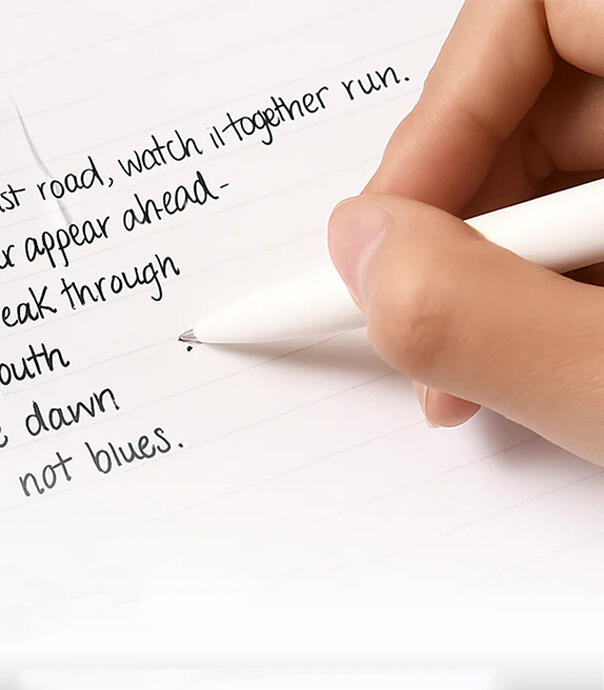 st road, watch it together run.
r appear ahead-
eak through
outh
dawn
not blues.